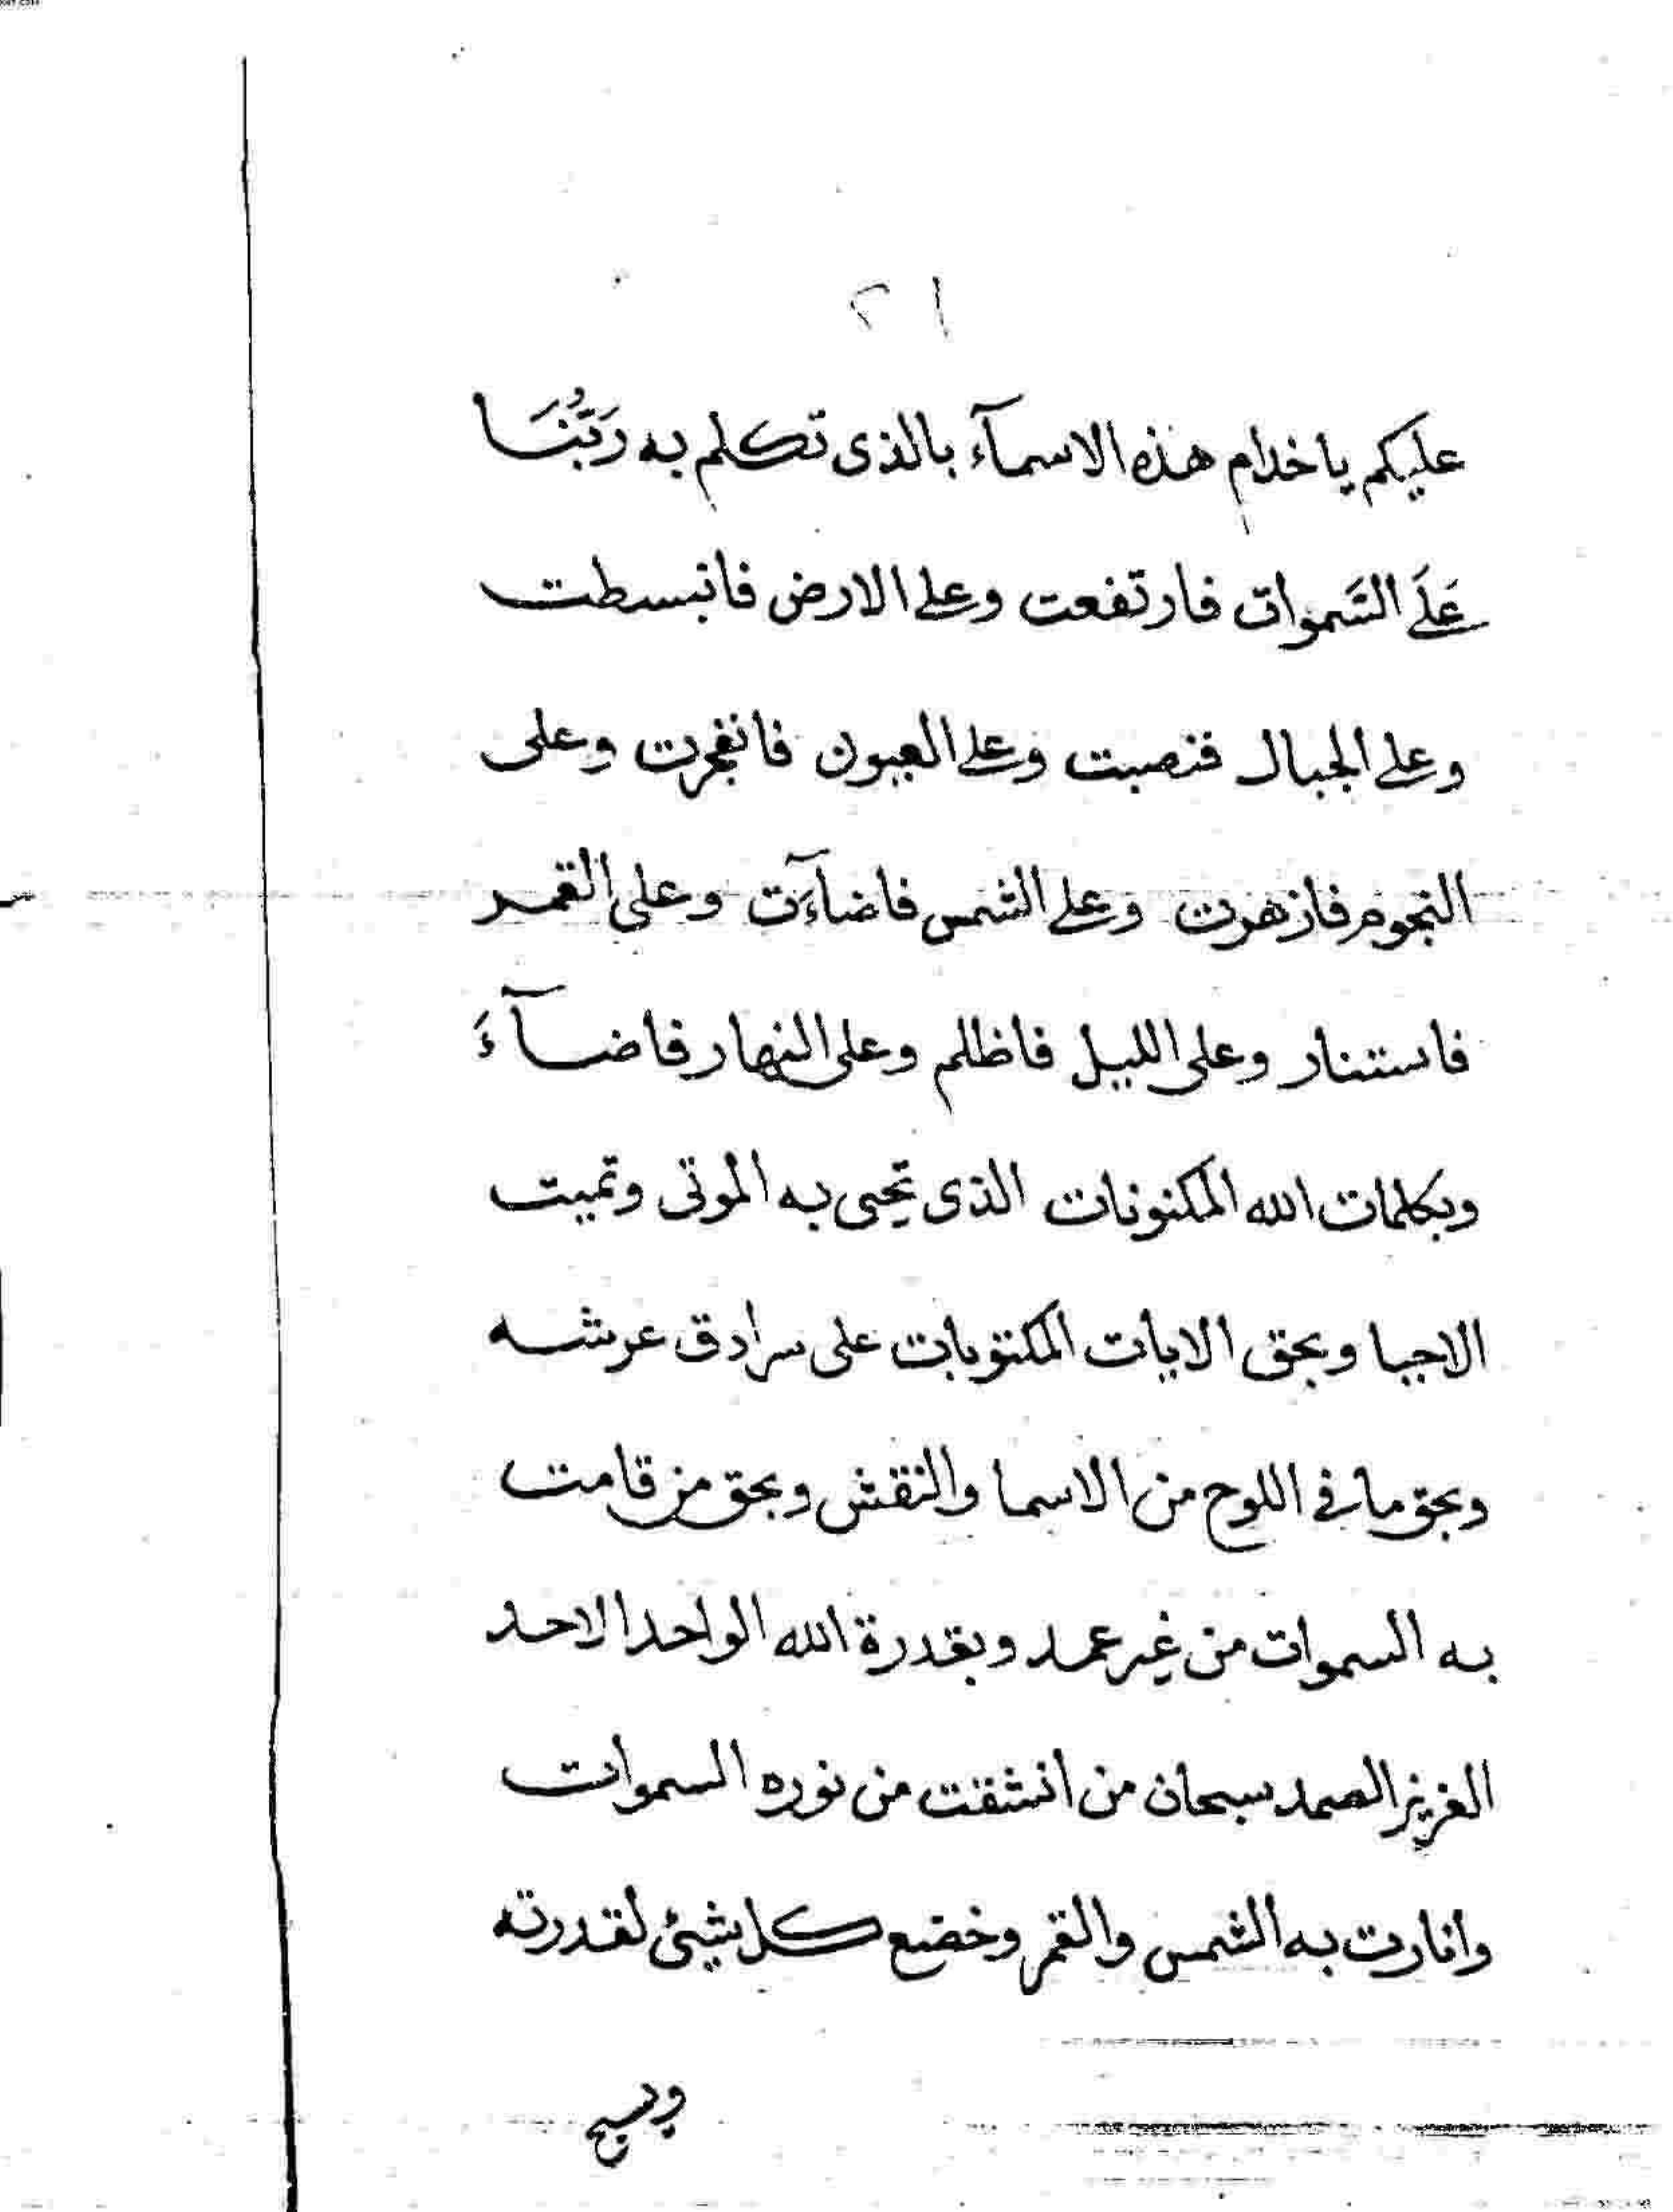 ١٢
عليكم يا خدام هذه الاسمآء بالذى تكلم به رَبُّنَا
عَلَى السَّموات فارتفعت وعلى الارض فانبسطت
وعلى الجبال فنصبت وعلى العيون فانفجرت وعلى
النجوم فازهرت وعلى الشمس فاضآءت وعلى القمر
فاستنار وعلى الليل فاظلم وعلى النهار فاضآءَ
وبكلمات الله المكنونات الذى تحيى به الموتى وتميت
الاحيا وبحق الايات المكتوبات على سرادق عرشه
وبحق ما فى اللوح من الاسما والنقش وبحق من قامت
به السموات من غير عمد وبقدرة الله الواحد الاحد
العزيز الصمد سبحان من انشقت من نوره السموات
وانارت به الشمس والقمر وخضع كل شيئ لقدرته
ويسبح